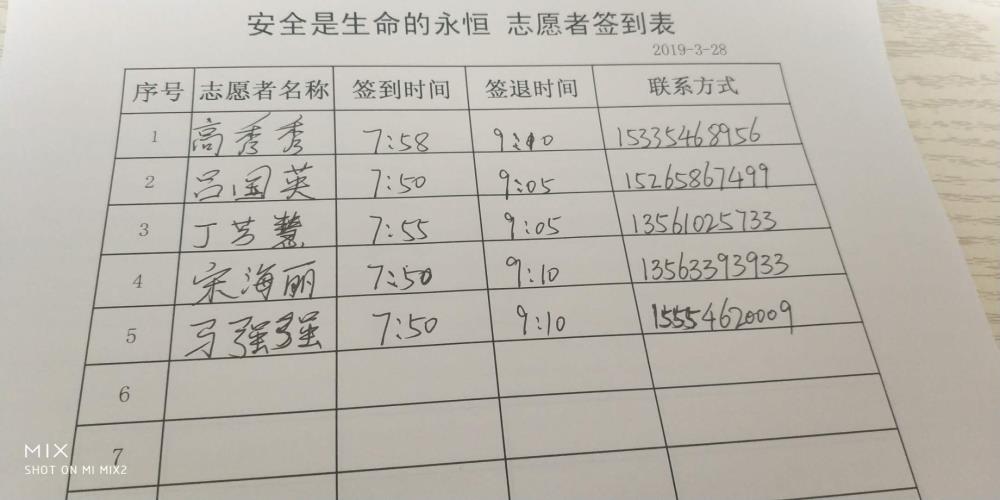 安全是生命的永恒 志愿者签到表
2019-3-28
序号 志愿者名称 签到时间 签退时间 联系方式
1 高秀秀 7:58 9:10 15335468956
2 吕国英 7:50 9:05 15265867499
3 丁芳慧 7:55 9:05 13561025733
4 宋海丽 7:50 9:10 13563393933
5 马强强 7:50 9:10 15554620009
6
7
MIX
SHOT ON MI MIX2